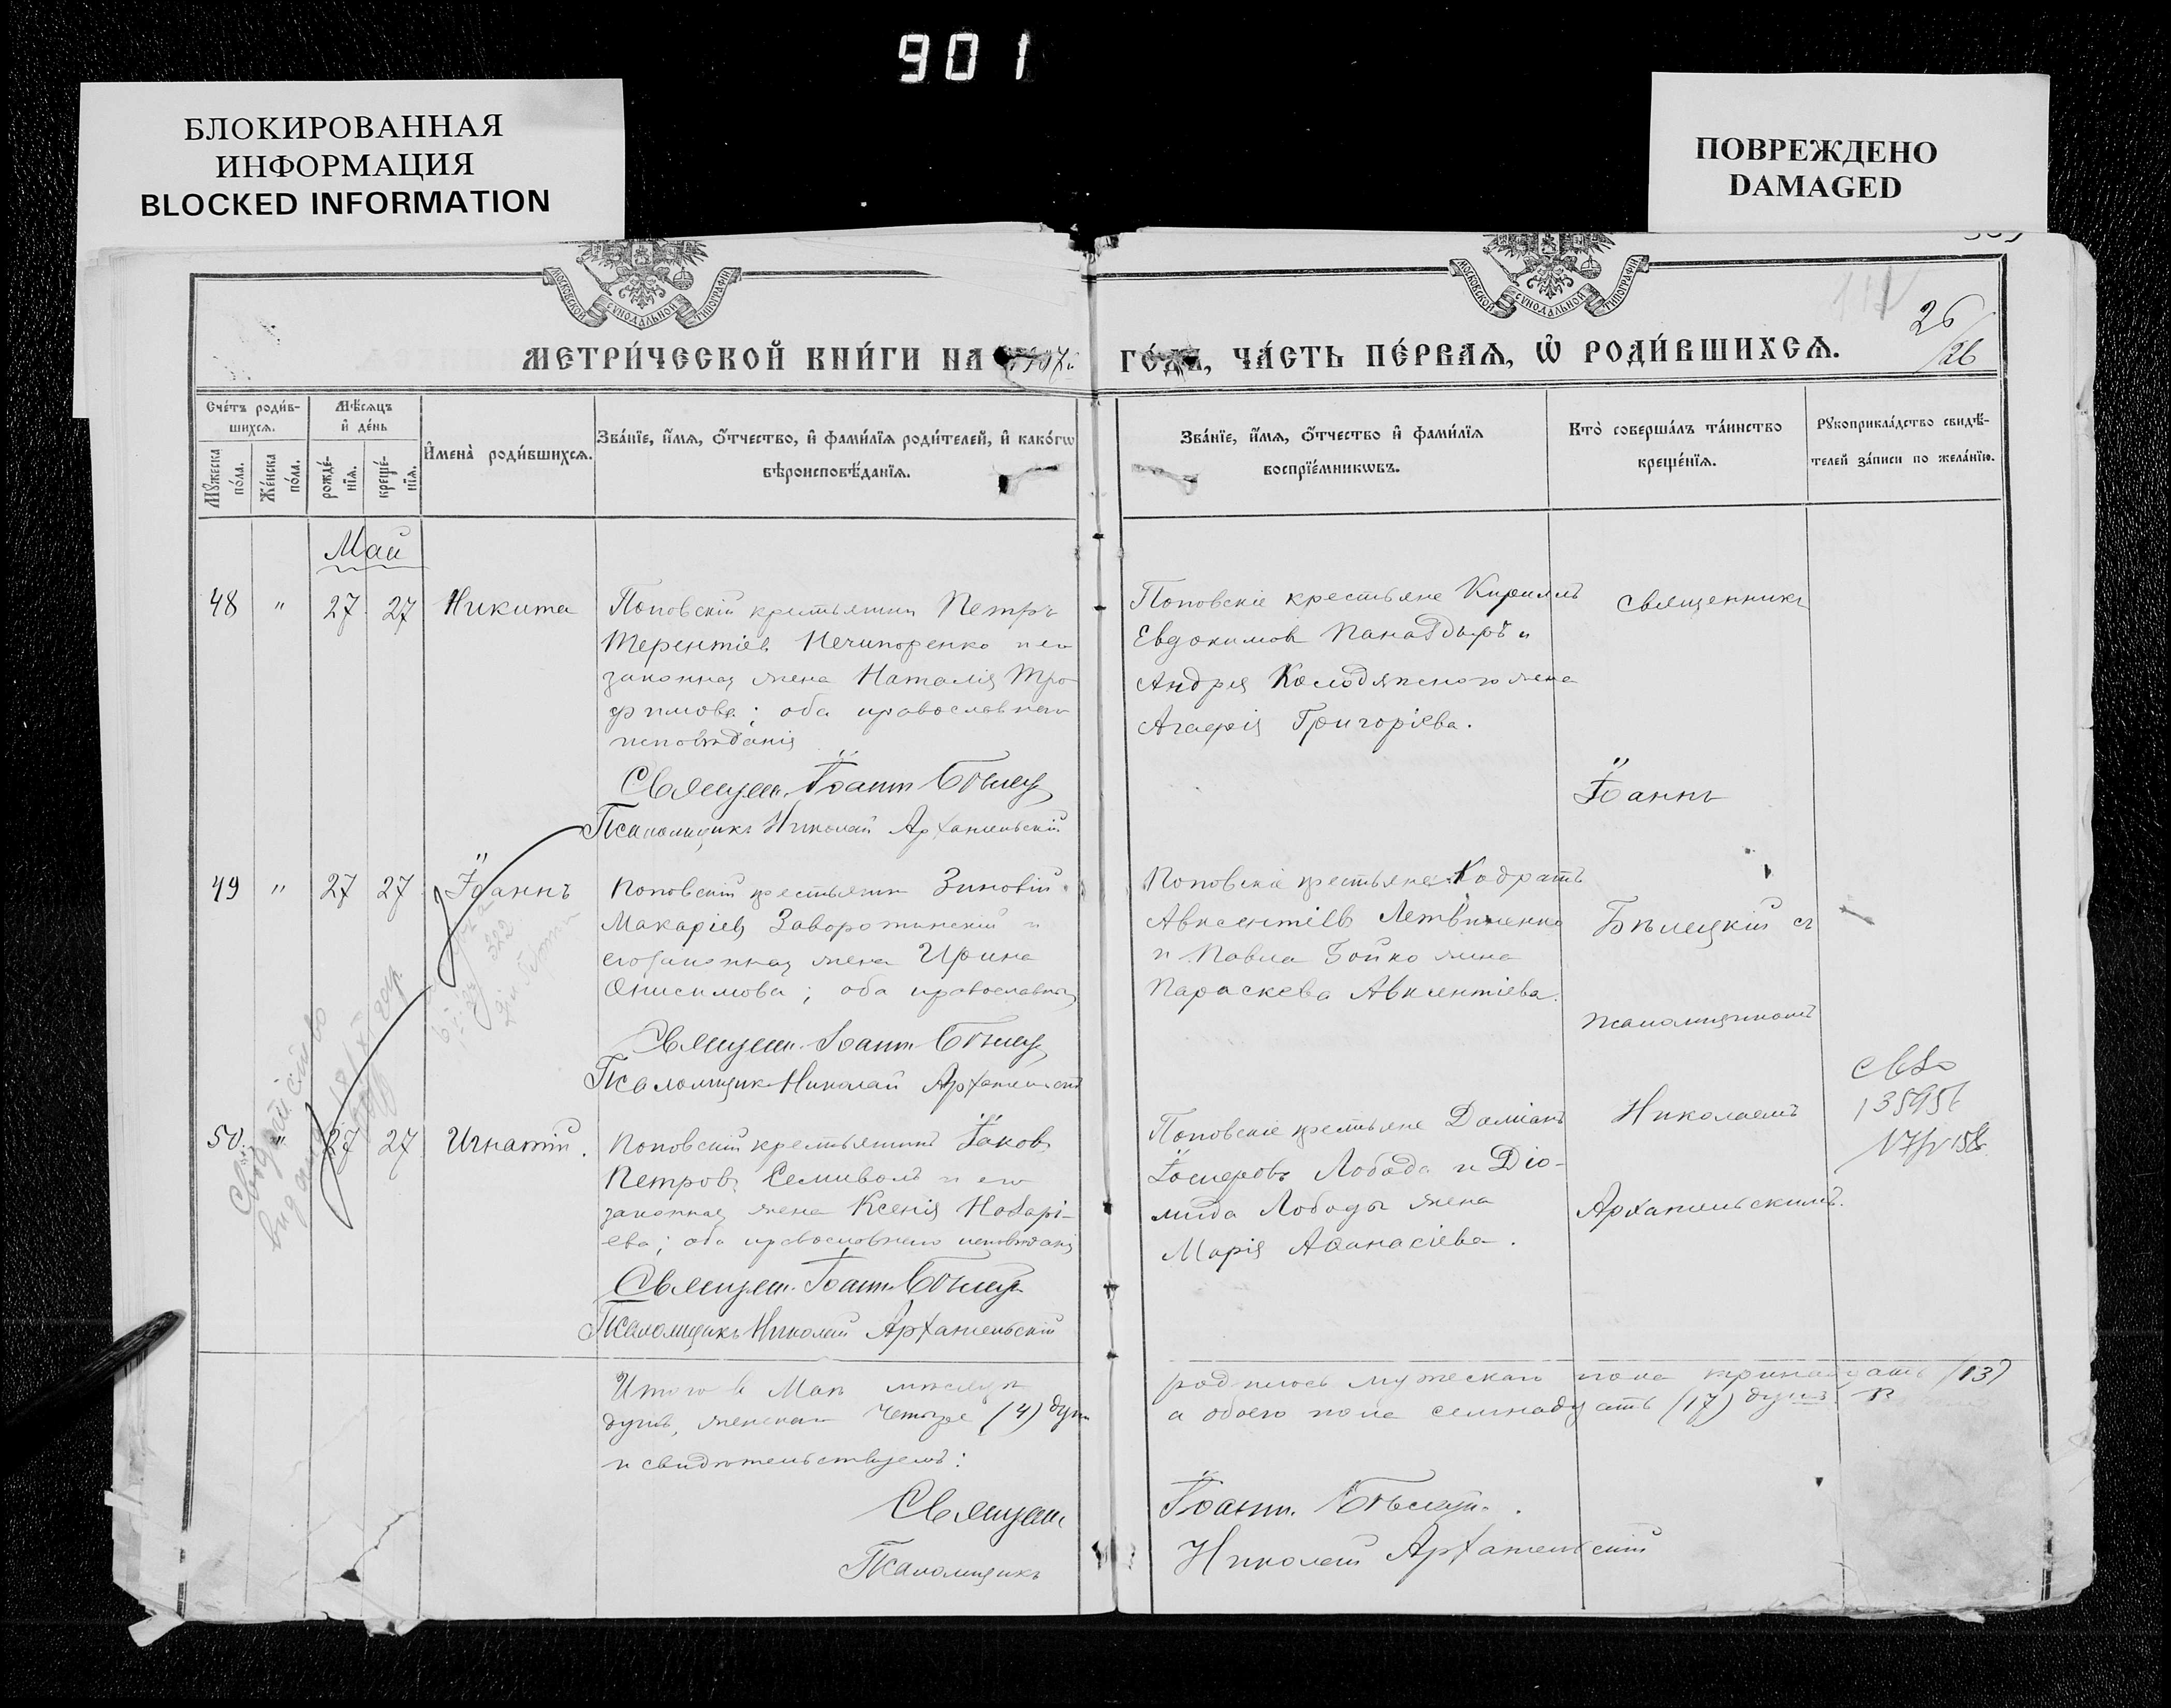 901
БЛОКИРОВАННАЯ
ИНФОРМАЦИЯ
BLOCKED INFORMATION
ПОВРЕЖДЕНО
DAMAGED
МОСКОВСКОЙ СѴНОДАЛЬНОЙ ТИПОГРАФІИ
МОСКОВСКОЙ СѴНОДАЛЬНОЙ ТИПОГРАФІИ
26
/26
МЕТРИ́ЧЕСКОЙ КНИ́ГИ НА
ГО́ДЪ, ЧА́СТЬ ПЕ́РВАѦ, Ѡ҆ РОДИ́ВШИХСѦ.
Сче́тъ роди́в-
шихсѧ.
Мꙋ́жеска
по́ла.
Же́нска
по́ла.
Мѣ́сѧцъ
и҆ де́нь
рожде́-
нїѧ.
креще́-
нїѧ.
И҆мена̀ роди́вшихсѧ.
Зва́нїе, и҆́мѧ, ѻ҆́тчество, и҆ фами́лїѧ роди́телей, и҆ како́гѡ
вѣроисповѣ́данїѧ.
Зва́нїе, и҆́мѧ, ѻ҆́тчество и҆ фами́лїѧ
воспрїе́мникѡвъ.
Кто̀ соверша́лъ та́инство
креще́нїѧ.
Рꙋкоприкла́дство свидѣ́-
телей за́писи по жела́нїю.
Май
48 " 27 27 Никита
Поповскій крестьянин Петръ
Терентіев Нечипоренко и его
законная жена Наталія Тро-
фимова; оба православнаго
исповѣданія
Священ. Іоаннъ Бѣлец
Псаломщикъ Николай Архангельскій
Поповскіе крестьяне Кириллъ
Евдокимов и
Андрея жена
Агафія Григоріева.
Священникъ
Іоаннъ
Бѣлецкій съ
псаломщикомъ
Николаемъ
Архангельскимъ.
49 " 27 27 Іоаннъ
Поповскій крестьянин Зиновій
Макаріев Заворотинскій и
его законная жена Ирина
Онисимова; оба православнаго
Священ. Іоаннъ Бѣлец
Псаломщикъ Николай Архангельскій
Поповскіе крестьяне Кодратъ
Авксентіевъ Летвиненко
и Павла Бойко жена
Параскева Авксентіева.
50. " 27 27 Игнатій.
Поповскій крестьянинъ Іаков
Петров Семиволъ и его
законная жена Ксенія Назарі-
ева; оба православнаго исповѣданія
Священ. Іоаннъ Бѣлец
Псаломщикъ Николай Архангельскій
Поповскіе крестьяне Даміанъ
Іосифовъ Лобода и Діо-
мида Лободы жена
Марія Аѳанасіева.
Итого в Маѣ мѣсяцѣ родилось мужескаго пола тринадцать (13)
душъ, женскаго четыре (4) душ а обоего пола семнадцать (17) душъ
и свидѣтельствуемъ:
Священ. Іоаннъ Бѣлец
Псаломщикъ Николай Архангельскій